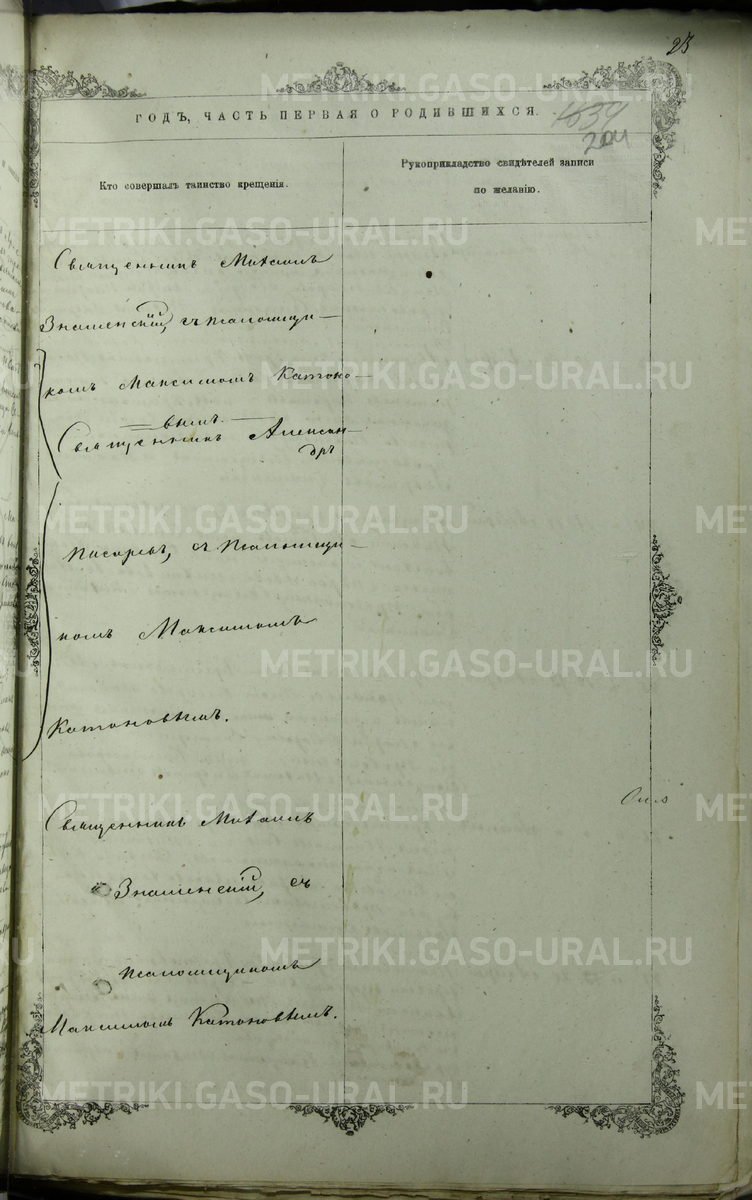 23
ГОДЪ, ЧАСТЬ ПЕРВАЯ О РОДИВШИХСЯ.
1639
204
Кто совершалъ таинство крещенія.
Рукоприкладство свидѣтелей записи
по желанію.
Священникъ Михаилъ
Знаменскій, съ псаломщи-
комъ Максимомъ Катоно-
вымъ.
Священникъ Алексан-
дръ
Писаревъ, съ псаломщи-
комъ Максимомъ
Катоновымъ.
Священникъ Михаилъ
Знаменскій, съ
псаломщикомъ
Максимомъ Катоновымъ.
METRIKI.GASO-URAL.RU